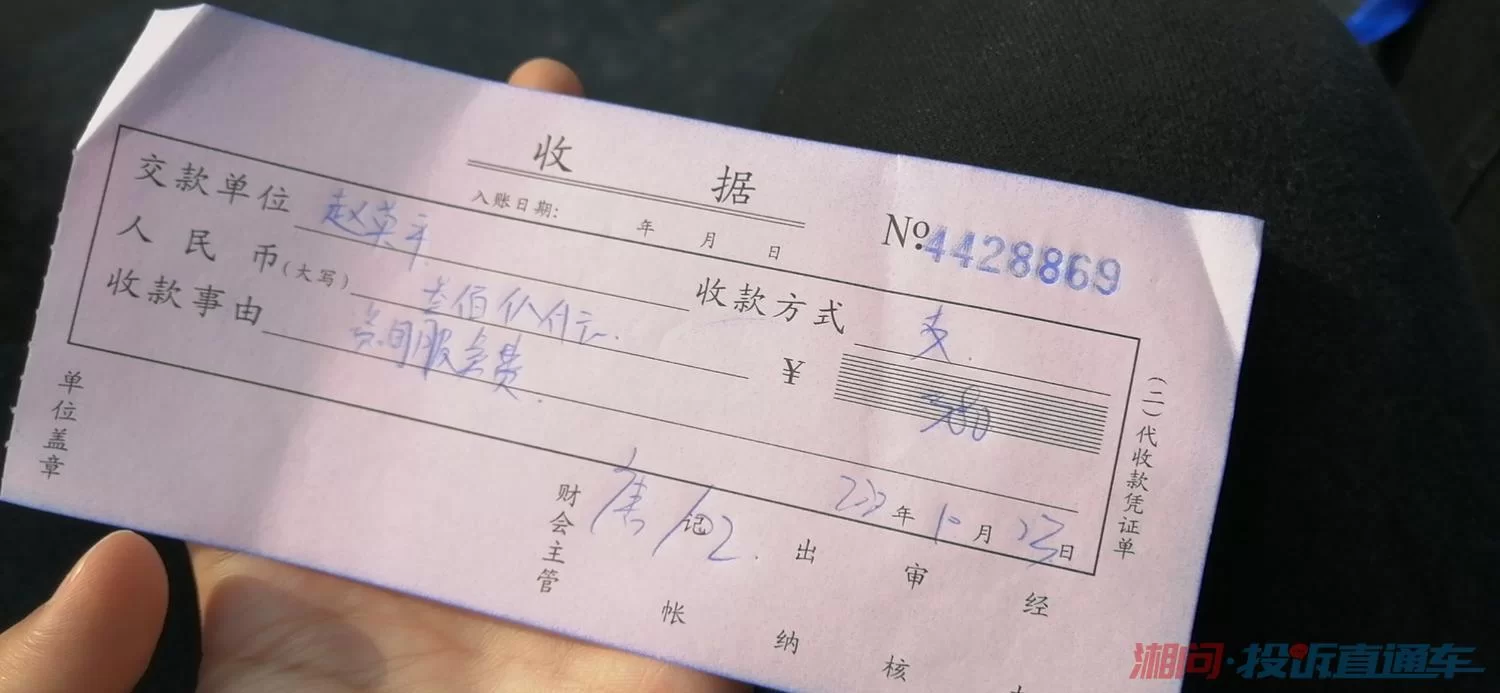 收据
入账日期: 年 月 日
№4428869
交款单位 赵英平 收款方式 支
人民币(大写) 叁佰 ¥ 380
收款事由 咨询服务费
年10月23日
(二)代收款凭证单
单位盖章
财会主管 唐 记帐 出纳 审核 经
湘问·投诉直通车